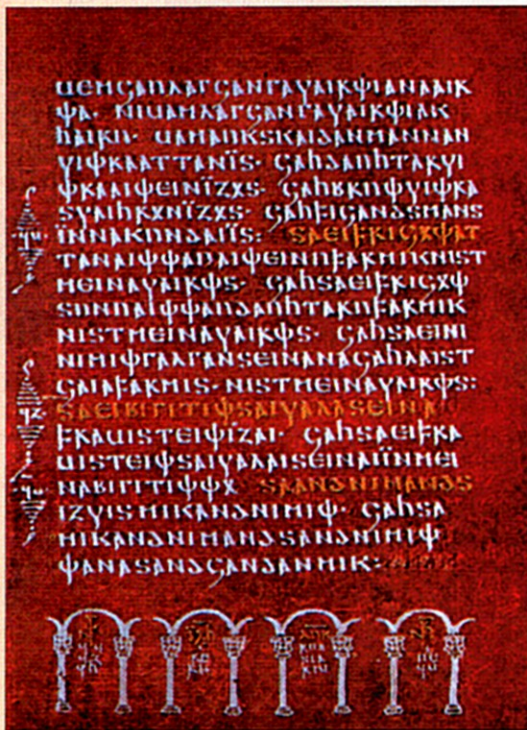 𐌵𐌴𐌼𐌾𐌰𐌿𐌻𐌰𐌲𐌾𐌰𐌽𐌲𐌰𐍅𐌰𐌹𐍂𐌸𐌹𐌰𐌽𐌰𐌰𐌹𐍂
𐌸𐌰· 𐌽𐌹𐌵𐌰𐌼𐌻𐌰𐌲𐌾𐌰𐌽𐌲𐌰𐍅𐌰𐌹𐍂𐌸𐌹𐌰𐌺
𐌷𐌰𐌹𐍂𐌿· 𐌵𐌰𐌼𐌰𐌿𐌺𐍃𐌺𐌰𐌹𐌳𐌰𐌽𐌼𐌰𐌽𐌽𐌰𐌽
𐍅𐌹𐌸𐍂𐌰𐌰𐍄𐍄𐌰𐌽𐌹̈𐍃· 𐌾𐌰𐌷𐌳𐌰𐌿𐌷𐍄𐌰𐍂𐍅𐌹
𐌸𐍂𐌰𐌰𐌹𐌸𐌴𐌹𐌽𐌹̈𐌶𐍉𐍃· 𐌾𐌰𐌷𐌱𐍂𐌿𐌸𐍅𐌹𐌸𐍂𐌰
𐍃𐍅𐌰𐌹𐌷𐍂𐍉𐌽𐌹̈𐌶𐍉𐍃· 𐌾𐌰𐌷𐍆𐌹𐌾𐌰𐌽𐌳𐍃𐌼𐌰𐌽𐍃
𐌹̈𐌽𐌽𐌰𐌺𐌿𐌽𐌳𐌰𐌹𐌹̈𐍃: 𐍃𐌰𐌴𐌹𐍆𐍂𐌹𐌾𐍉𐌸𐌰𐍄
𐍄𐌰𐌽𐌰𐌹𐌸𐌸𐌰𐌿𐌰𐌹𐌸𐌴𐌹𐌽𐌿𐍆𐌰𐍂𐌼𐌹𐌺𐌽𐌹𐍃𐍄
𐌼𐌴𐌹𐌽𐌰𐍅𐌰𐌹𐍂𐌸𐍃· 𐌾𐌰𐌷𐍃𐌰𐌴𐌹𐍆𐍂𐌹𐌾𐍉𐌸
𐍃𐌿𐌽𐌿𐌰𐌹𐌸𐌸𐌰𐌿𐌳𐌰𐌿𐌷𐍄𐌰𐍂𐌿𐍆𐌰𐍂𐌼𐌹𐌺
𐌽𐌹𐍃𐍄𐌼𐌴𐌹𐌽𐌰𐍅𐌰𐌹𐍂𐌸𐍃· 𐌾𐌰𐌷𐍃𐌰𐌴𐌹𐌽𐌹
𐌽𐌹𐌼𐌹𐌸𐌲𐌰𐌻𐌲𐌰𐌽𐍃𐌴𐌹𐌽𐌰𐌽𐌰𐌾𐌰𐌷𐌻𐌰𐌹𐍃𐍄
𐌾𐌰𐌹𐌰𐍆𐌰𐍂𐌼𐌹𐍃· 𐌽𐌹𐍃𐍄𐌼𐌴𐌹𐌽𐌰𐍅𐌰𐌹𐍂𐌸𐍃:
𐍃𐌰𐌴𐌹𐌱𐌹𐌲𐌹𐍄𐌹𐌸𐍃𐌰𐌹𐍅𐌰𐌻𐌰𐍃𐌴𐌹𐌽𐌰
𐍆𐍂𐌰𐌵𐌹𐍃𐍄𐌴𐌹𐌸𐌹̈𐌶𐌰𐌹· 𐌾𐌰𐌷𐍃𐌰𐌴𐌹𐍆𐍂𐌰
𐌵𐌹𐍃𐍄𐌴𐌹𐌸𐍃𐌰𐌹𐍅𐌰𐌻𐌰𐌹𐍃𐌴𐌹𐌽𐌰𐌹𐌹̈𐌽𐌼𐌴𐌹
𐌽𐌰𐌱𐌹𐌲𐌹𐍄𐌹𐌸𐌸𐍉 𐍃𐌰𐌰𐌽𐌳𐌽𐌹𐌼𐌰𐌽𐌳𐍃
𐌹𐌶𐍅𐌹𐍃𐌼𐌹𐌺𐌰𐌽𐌳𐌽𐌹𐌼𐌹𐌸· 𐌾𐌰𐌷𐍃𐌰
𐌼𐌹𐌺𐌰𐌽𐌳𐌽𐌹𐌼𐌰𐌽𐌳𐍃𐌰𐌽𐌳𐌽𐌹𐌼𐌹𐌸
𐌸𐌰𐌽𐌰𐍃𐌰𐌽𐌳𐌾𐌰𐌽𐌳𐌰𐌽𐌼𐌹𐌺: